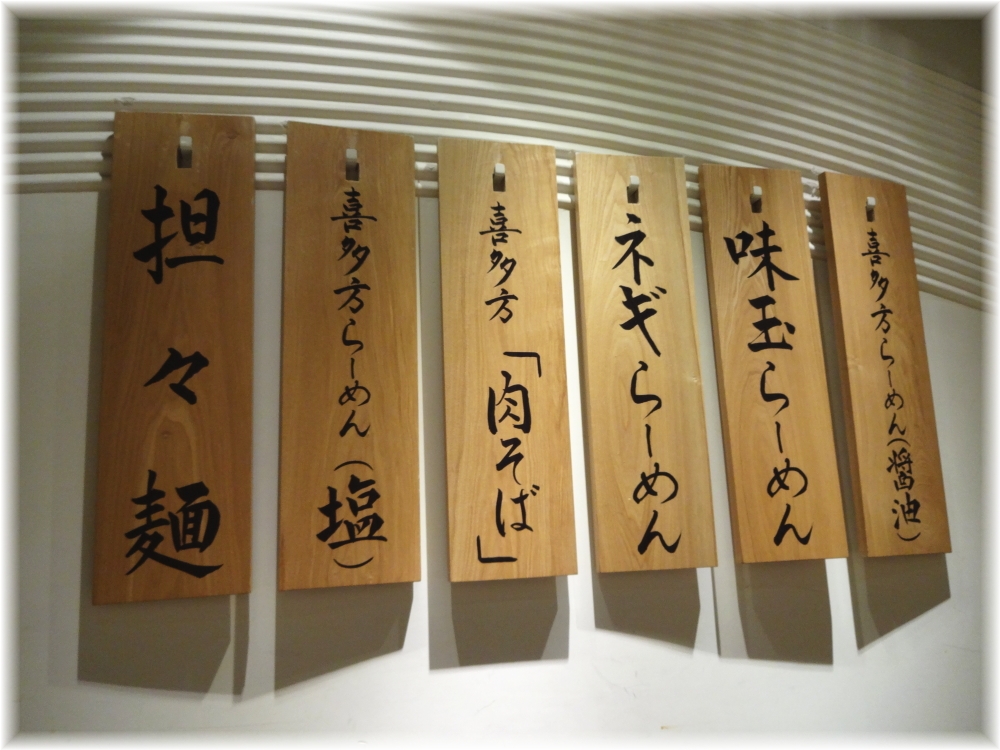 喜多方らーめん(醤油)
味玉らーめん
ネギらーめん
喜多方「肉そば」
喜多方らーめん(塩)
担々麺